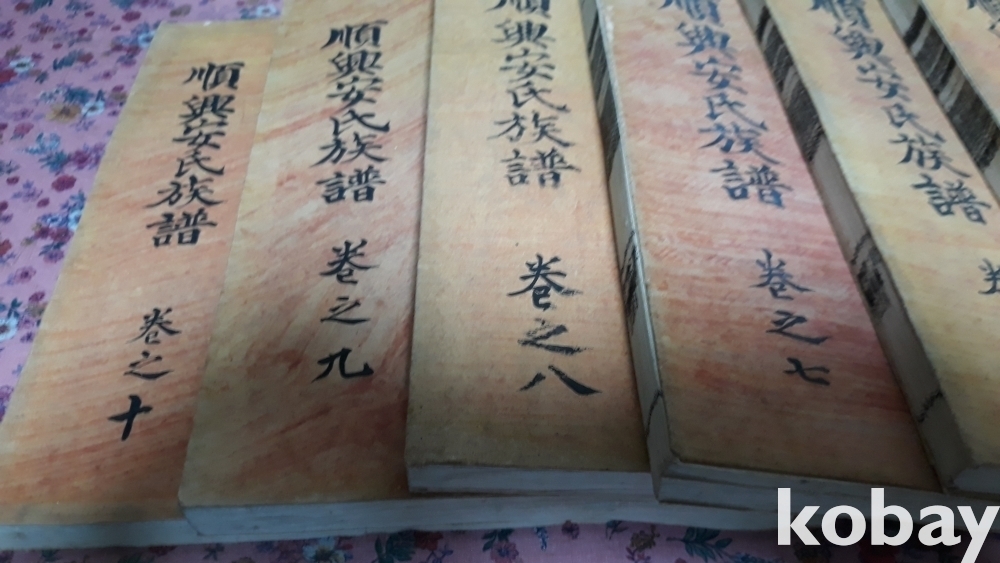 順興安氏族譜 卷之十
順興安氏族譜 卷之九
順興安氏族譜 卷之八
順興安氏族譜 卷之七
順興安氏族譜
kobay